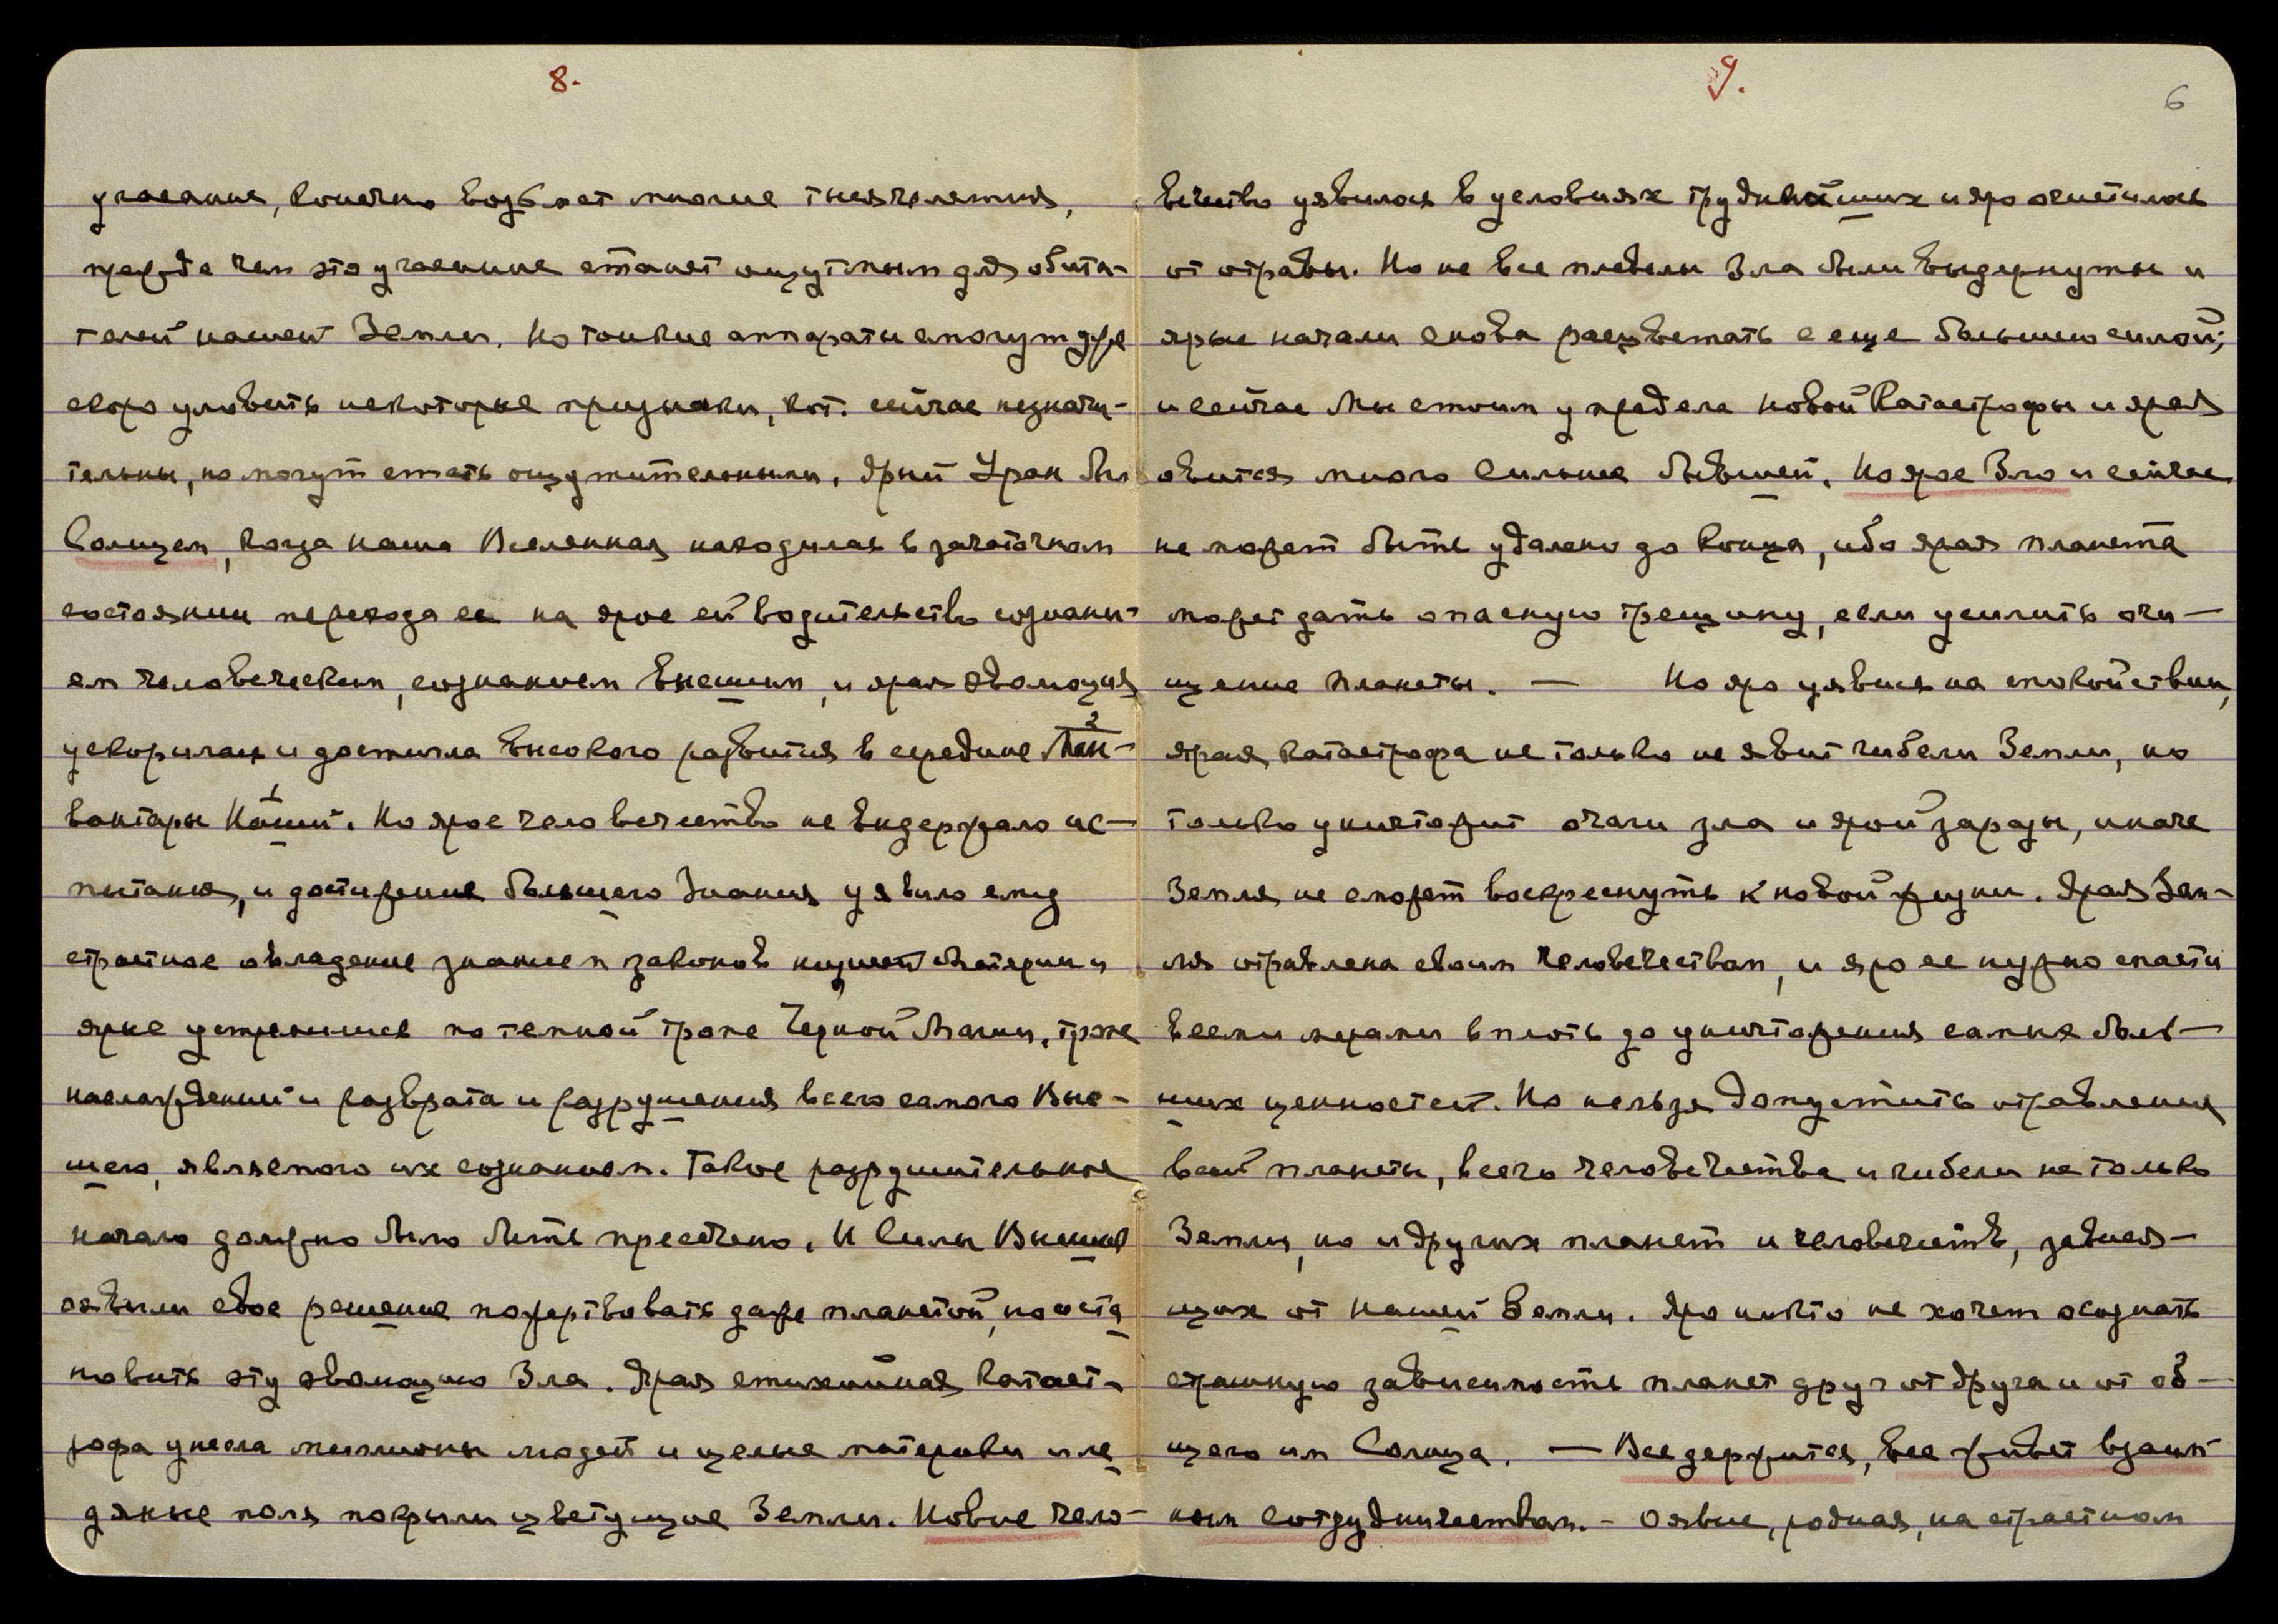 8.
угасание, конечно возьмет многие тысячелетия,
прежде чем это угасание станет ощутимым для обита-
телей нашей Земли. Но тонкие аппараты смогут уже
скоро уловить некоторые признаки, кот. сейчас незначи-
тельны, но могут стать ощутительными. Ярый Уран был
Солнцем, когда наша Вселенная находилась в зачаточном
состоянии перехода ее на ярое ей водительство сознани-
ем человеческим, сознанием Высшим, и ярая эволюция
ускорилась и достигла высокого развития в середине Ман-
вантары Нашей. Но ярое человечество не выдержало ис-
питания, и достижение большего Знания уявило ему
страстное овладение знанием законов низшей Материи и
ярые устремились по темной тропе Черной Магии, тропе
наслаждений и разврата и разрушения всего самого Выс-
шего, являемого их сознанием. Такое разрушительное
начало должно было быть пресечено. И Силы Высшие
оявили свое решение пожертвовать даже планетой, но оста
новить эту эволюцию Зла. Ярая стихийная Катаст-
рофа унесла миллионы людей и целые материки и ле
дяные поля покрыли цветущие Земли. Новое чело-
9.
6
вечество уявилось в условиях труднейших и яро очистилось
от отравы. Но не все плевелы Зла были выдернуты и
ярые начали снова расцветать с еще большею силой;
и сейчас Мы стоим у предела новой Катастрофы и ярая
явится много сильнее бывшей. Но ярое Зло и сейчас
не может быть удалено до конца, ибо ярая планета
может дать опасную трещину, если усилить очи-
щение планеты. — Но яро уявись на спокойствии,
ярая Катастрофа не только не явит гибели Земли, но
только уничтожит очаги зла и ярой заразы, иначе
Земля не сможет воскреснуть к новой жизни. Ярая Зем-
ля отравлена своим человечеством, и яро ее нужно спасти
всеми мерами вплоть до уничтожения самих боль-
ших ценностей. Но нельзя допустить отравления
всей планеты, всего человечества и гибели не только
Земли, но и других планет и человечеств, завися-
щих от нашей Земли. Яро никто не хочет осознать
страшную зависимость планет друг от друга и от об-
щего им Солнца. — Все держится, все живет взаим
ным сотрудничеством. - Оявись, родная, на страстном